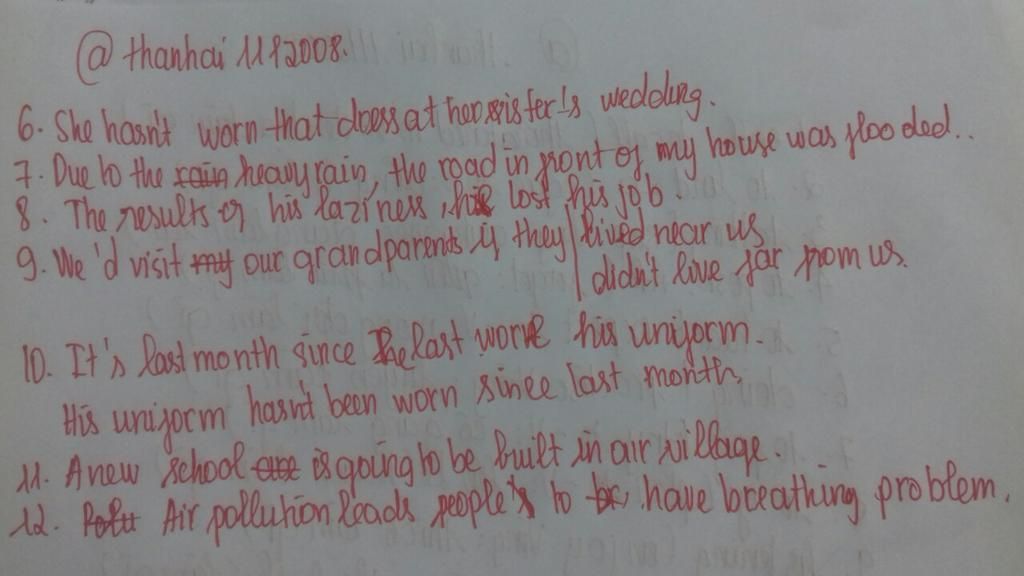 @ thanhai 1112008.
6. She hasn't worn that dress at her sister's wedding.
7. Due to the rain heavy rain, the road in front of my house was flooded..
8. The results of his laziness, his lost his job.
9. We'd visit my our grandparents if they lived near us
didn't live far from us.
10. It's last month since he last wore his uniform.
His uniform hasn't been worn since last month.
11. A new school is going to be built in air village.
12. Air pollution leads people's to be have breathing problem.